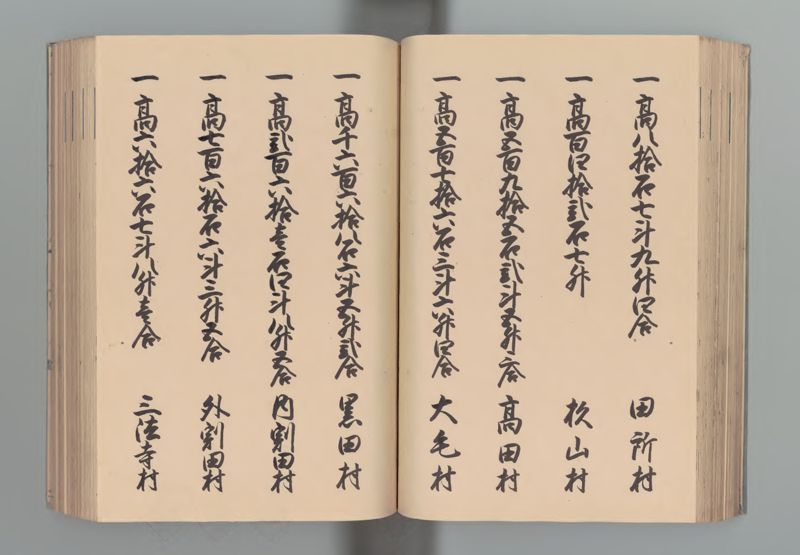 一 高八拾石七斗九升四合 田所村
一 高百四拾弐石七升 杦山村
一 高五百九拾五石弐斗五升六合 高田村
一 高五百七拾六石三斗六升四合 大毛村
一 高千六百六拾八石六斗五升弐合 黒田村
一 高弐百六拾壱石四斗八升五合 内割田村
一 高七百六拾石六斗三升五合 外割田村
一 高六拾六石七斗八升壱合 三法寺村